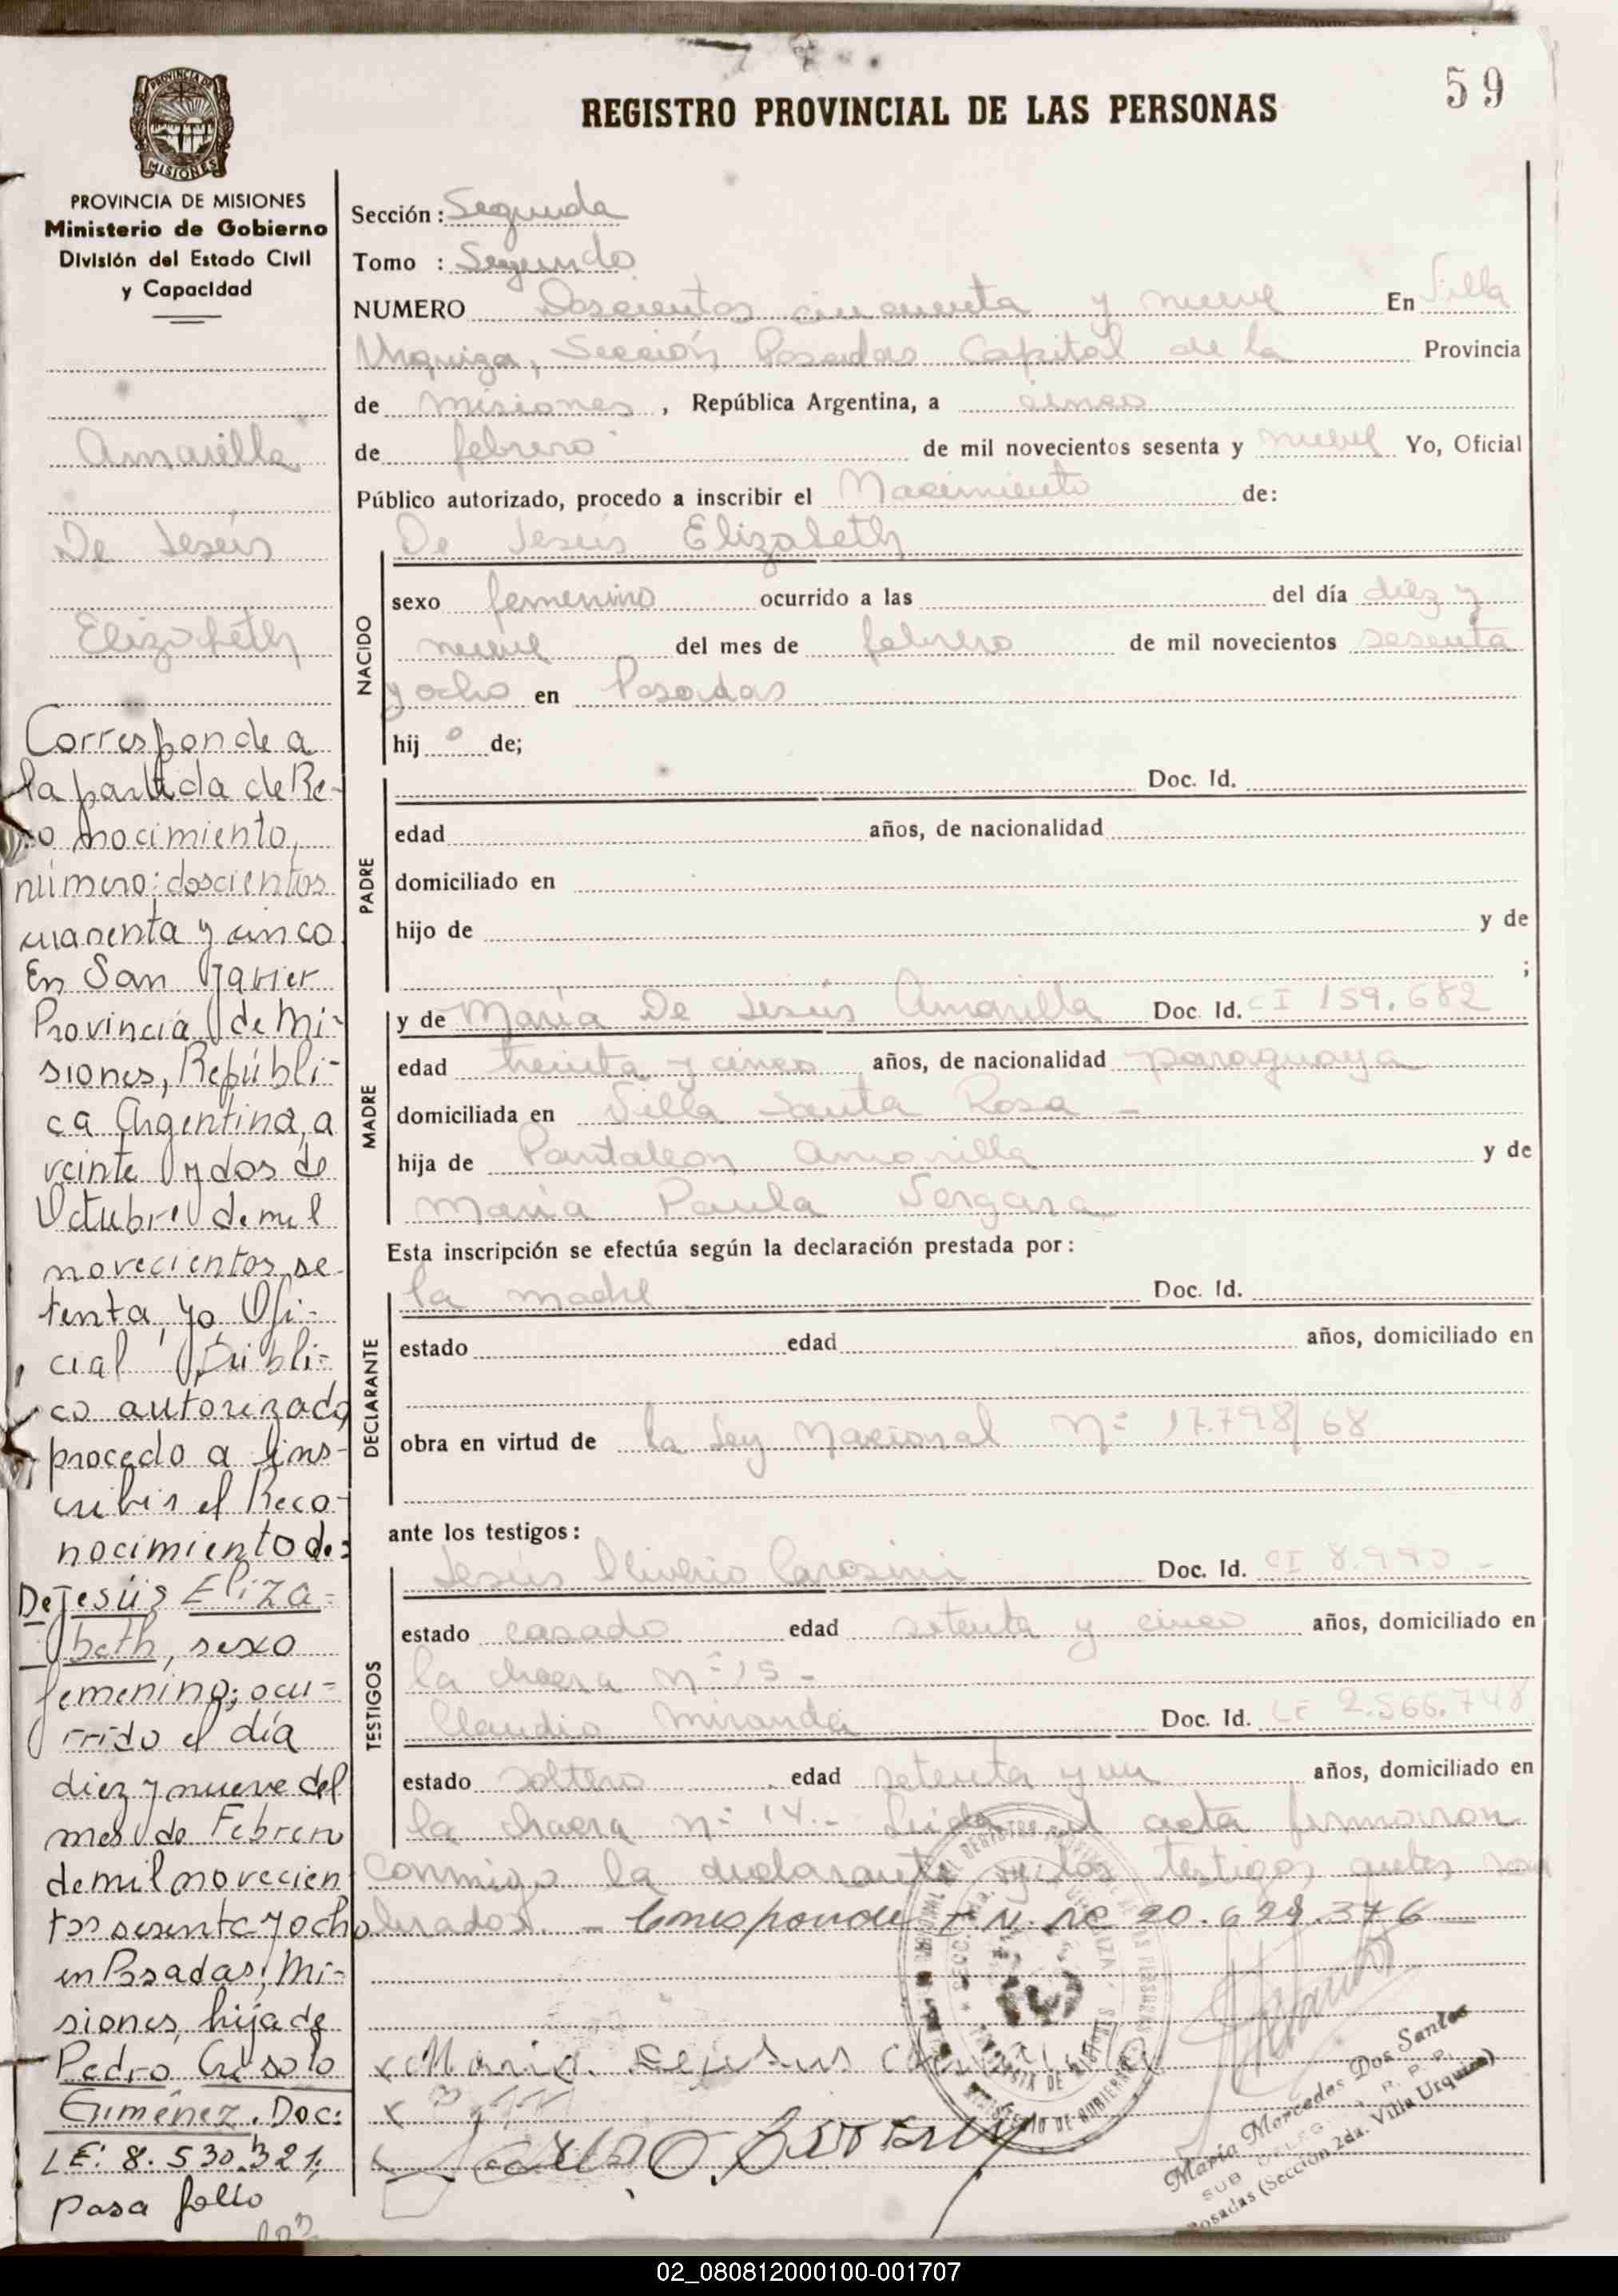 59
REGISTRO PROVINCIAL DE LAS PERSONAS
PROVINCIA DE
MISIONES
PROVINCIA DE MISIONES
Ministerio de Gobierno
División del Estado Civil
y Capacidad
Amarilla
De Jesús
Elizabeth
Corresponde a
la partida de Re-
conocimiento,
número: doscientos
cuarenta y cinco
En San Javier
Provincia de Mi-
siones, Repúbli-
ca Argentina, a
veinte y dos de
Octubre de mil
novecientos se-
tenta, yo, Ofi-
cial Públi-
co autorizado
procedo a ins-
cribir el Reco-
nocimiento de:
De Jesús Eliza-
beth, sexo
femenino; ocu-
rrido el día
diez y nueve del
mes de Febrero
de mil novecien
tos sesenta y ocho
en Posadas, Mi-
siones, hija de
Pedro Crisolo
Giménez. Doc:
LE: 8.530.321,
pasa folio
Sección: Segunda
Tomo : Segundo
NUMERO Doscientos cincuenta y nueve En Villa
Urquiza, Sección Posadas Capital de la Provincia
de Misiones, República Argentina, a cinco
de febrero de mil novecientos sesenta y nueve Yo, Oficial
Público autorizado, procedo a inscribir el Nacimiento de:
De Jesús Elizabeth
NACIDO
sexo femenino ocurrido a las del día diez y
nueve del mes de febrero de mil novecientos sesenta
y ocho en Posadas
hij o de;
PADRE
Doc. Id.
edad años, de nacionalidad
domiciliado en
hijo de y de
;
MADRE
y de María De Jesús Amarilla Doc. Id. CI 159.682
edad treinta y cinco años, de nacionalidad paraguaya
domiciliada en Villa Santa Rosa -
hija de Pantaleon Amarilla y de
María Paula Vergara
Esta inscripción se efectúa según la declaración prestada por:
DECLARANTE
la madre Doc. Id.
estado edad años, domiciliado en
obra en virtud de la Ley Nacional Nº 17.798/68
ante los testigos:
TESTIGOS
Jesús Oliverio Carosini Doc. Id. CI
estado casado edad setenta y cinco años, domiciliado en
la chacra nº 15 -
Claudio Miranda Doc. Id. LE 2.566.748
estado soltero edad setenta y un años, domiciliado en
la chacra nº 14.- Leída el acta firmaron
conmigo la declarante y los testigos antes nom
brados. - Corresponde 20.629.376
x Maria Jesus
x
María Mercedes Dos Santos
Posadas (Sección 2da. Villa Urquiza)
02_080812000100-001707